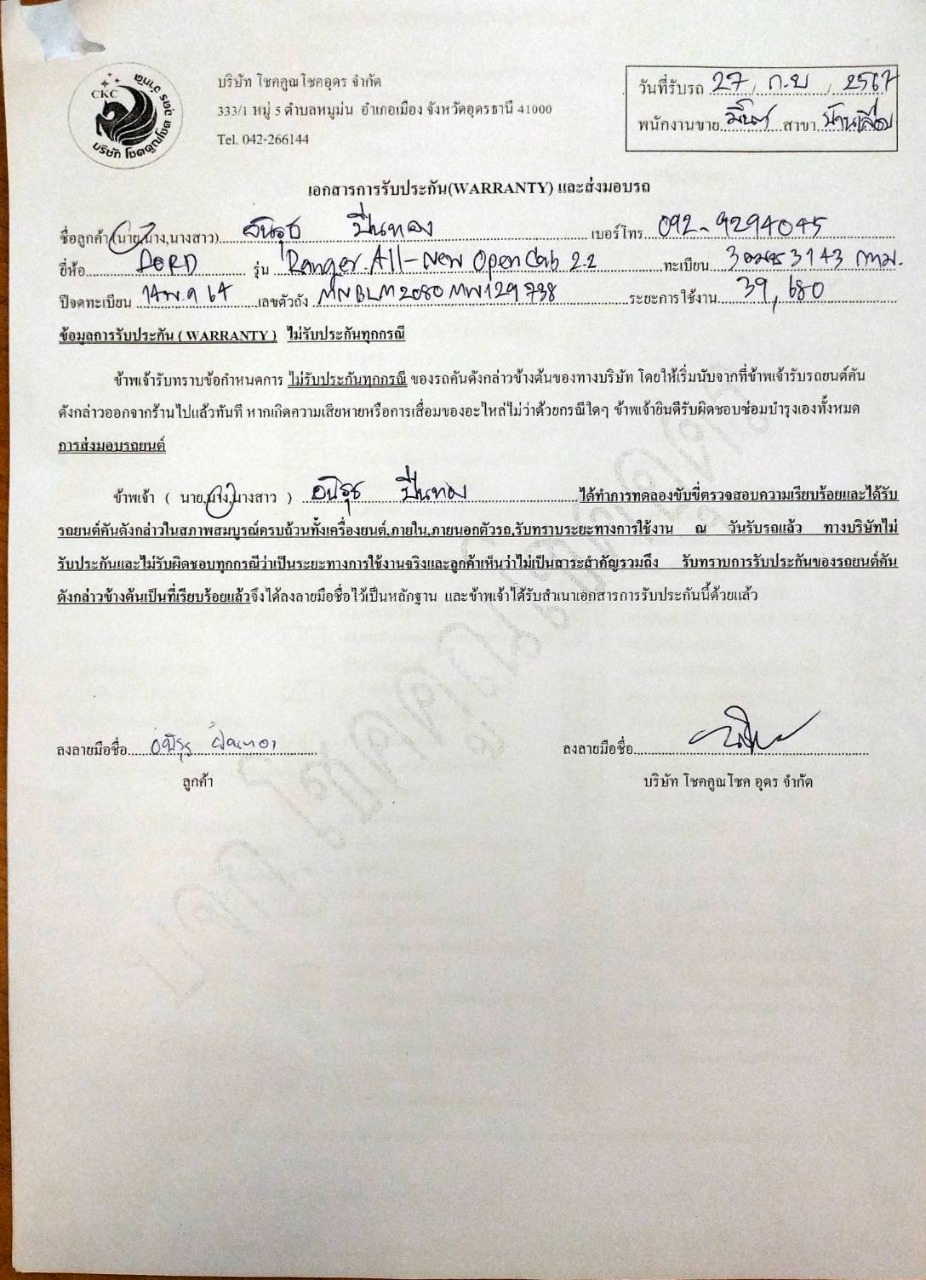 CKC
บริษัท โชคคูณโชคอุดร จำกัด
บริษัท โชคคูณโชคอุดร จำกัด
333/1 หมู่ 5 ตำบลหนูม่น อำเภอเมือง จังหวัดอุดรธานี 41000
Tel. 042-266144
วันที่รับรถ 27 / ก.ย / 2567
พนักงานขาย มิ้นต์ สาขา บ้านเลื่อม
เอกสารการรับประกัน(WARRANTY) และส่งมอบรถ
ชื่อลูกค้า (นาย,นาง,นางสาว) อนิรุธ ปื่นทอง เบอร์โทร. 092-9294045
ยี่ห้อ FORD รุ่น Ranger All-New Open Cab 2.2 ทะเบียน 3143 กทม.
ปีจดทะเบียน 64 เลขตัวถัง MNBLM2080MW129738 ระยะการใช้งาน 39,680
ข้อมูลการรับประกัน ( WARRANTY ) ไม่รับประกันทุกกรณี
ข้าพเจ้ารับทราบข้อกำหนดการ ไม่รับประกันทุกกรณี ของรถคันดังกล่าวข้างต้นของทางบริษัท โดยให้เริ่มนับจากที่ข้าพเจ้ารับรถยนต์คัน
ดังกล่าวออกจากร้านไปแล้วทันที หากเกิดความเสียหายหรือการเสื่อมของอะไหล่ไม่ว่าด้วยกรณีใดๆ ข้าพเจ้ายินดีรับผิดชอบซ่อมบำรุงเองทั้งหมด
การส่งมอบรถยนต์
ข้าพเจ้า ( นาย,นาง,นางสาว ) อนิรุธ ปื่นทอง ได้ทำการทดลองขับขี่ตรวจสอบความเรียบร้อยและได้รับ
รถยนต์คันดังกล่าวในสภาพสมบูรณ์ครบถ้วนทั้งเครื่องยนต์,ภายใน,ภายนอกตัวรถ,รับทราบระยะทางการใช้งาน ณ วันรับรถแล้ว ทางบริษัทไม่
รับประกันและไม่รับผิดชอบทุกกรณีว่าเป็นระยะทางการใช้งานจริงและลูกค้าเห็นว่าไม่เป็นสาระสำคัญรวมถึง รับทราบการรับประกันของรถยนต์คัน
ดังกล่าวข้างต้นเป็นที่เรียบร้อยแล้วจึงได้ลงลายมือชื่อไว้เป็นหลักฐาน และข้าพเจ้าได้รับสำเนาเอกสารการรับประกันนี้ด้วยแล้ว
ลงลายมือชื่อ อนิรุธ ปื่นทอง
ลงลายมือชื่อ
ลูกค้า
บริษัท โชคคูณโชค อุดร จำกัด
บจก.โชคคูณโชคอุดร